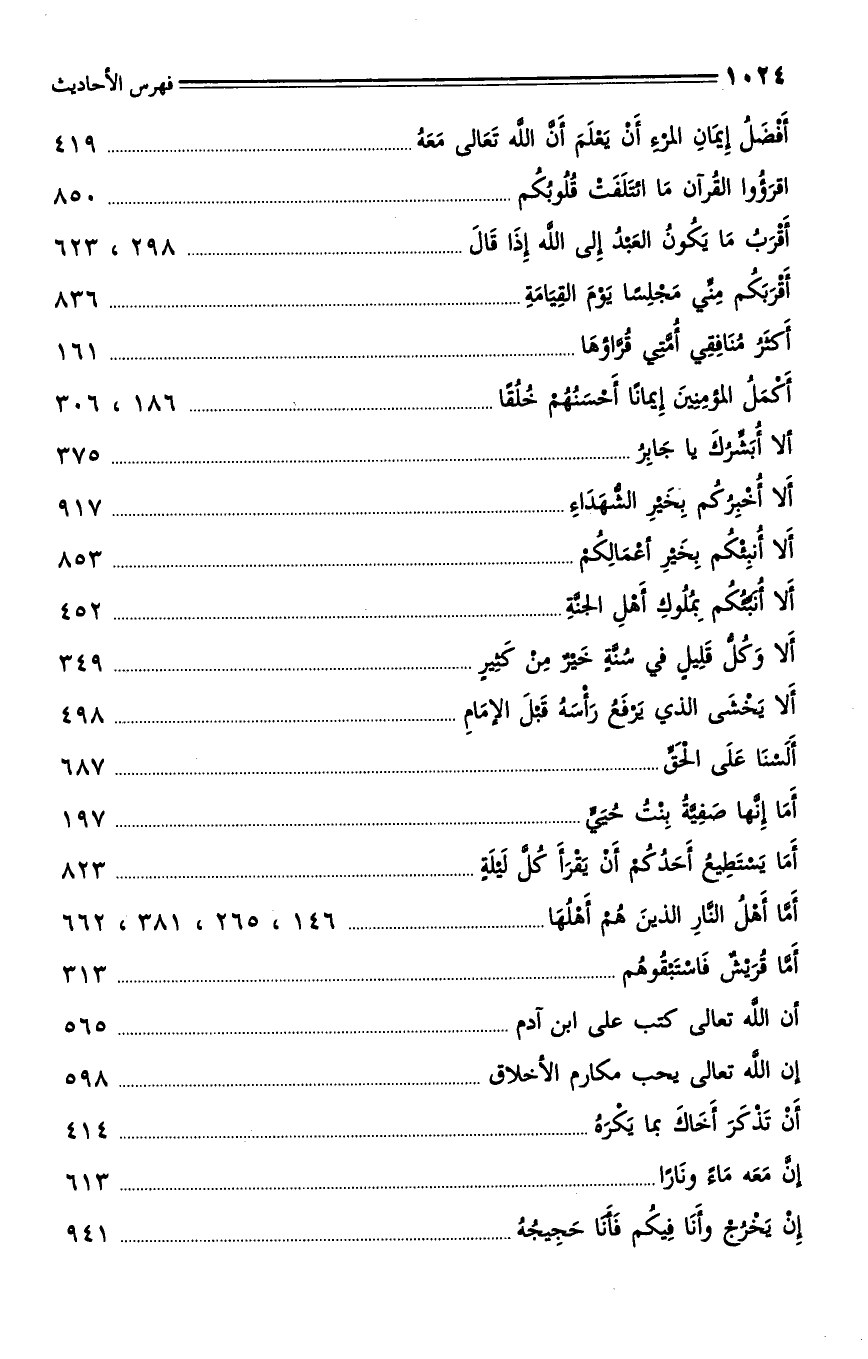 ١٠٢٤ فهرس الأحاديث
أَفْضَلُ إِيمَانِ المرْءِ أَنْ يَعْلَمَ أَنَّ اللَّه تَعَالى مَعَهُ ٤١٩
اقرَؤُوا القُرآن مَا ائتَلَفَتْ قُلُوبُكُم ٨٥٠
أَقْرَبُ مَا يَكُونُ العَبْدُ إلى اللَّه إِذَا قَالَ ٢٩٨ ، ٦٢٣
أَقْرَبَكُم مِنِّي مَجْلِسًا يَوْمَ القِيَامَةِ ٨٣٦
أَكثَرُ مُنَافِقِي أُمَّتِي قُرَّاؤهَا ١٦١
أَكْمَلُ المؤمِنِينَ إِيمانًا أَحْسَنُهُمْ خُلُقًا ١٨٦ ، ٣٠٦
ألا أُبَشِّرُكَ يا جَابِرُ ٣٧٥
أَلا أُخْبِرُكُم بِخَيْرِ الشُّهَدَاءِ ٩١٧
أَلا أُنبِئْكُم بِخَيْرِ أعْمَالِكُمْ ٨٥٣
أَلا أُنَبِّئُكُم بِمُلُوكِ أَهْلِ الجنَّةِ ٤٥٢
أَلا وَكُلُّ قَلِيلٍ في سُنَّةٍ خَيْرٌ مِنْ كَثِيرٍ ٣٤٩
أَلا يَخْشَى الذي يَرْفَعُ رَأْسَهُ قَبْلَ الإمَامِ ٤٩٨
أَلَسْنَا عَلَى الْحَقِّ ٦٨٧
أَمَا إِنَّها صَفِيَّةُ بِنْتُ حُيَيٍّ ١٩٧
أَمَا يَسْتَطِيعُ أَحَدُكُمْ أَنْ يَقْرَأَ كُلَّ لَيْلَةٍ ٨٢٣
أَمَّا أَهْلُ النَّارِ الذينَ هُمْ أَهْلُهَا ١٤٦ ، ٢٦٥ ، ٣٨١ ، ٦٦٢
أَمَّا قُرَيْشٌ فَاسْتَبْقُوهُم ٣١٣
أن اللَّه تعالى كتب على ابن آدم ٥٦٥
إن اللَّه تعالى يحب مكارم الأخلاق ٥٩٨
أَنْ تَذْكَرَ أَخَاكَ بما يَكْرَهُ ٤١٤
إنَّ مَعَه مَاءً ونَارًا ٦١٣
إِنْ يَخْرُجْ وأَنَا فِيكُم فَأَنَا حَجِيجُهُ ٩٤١